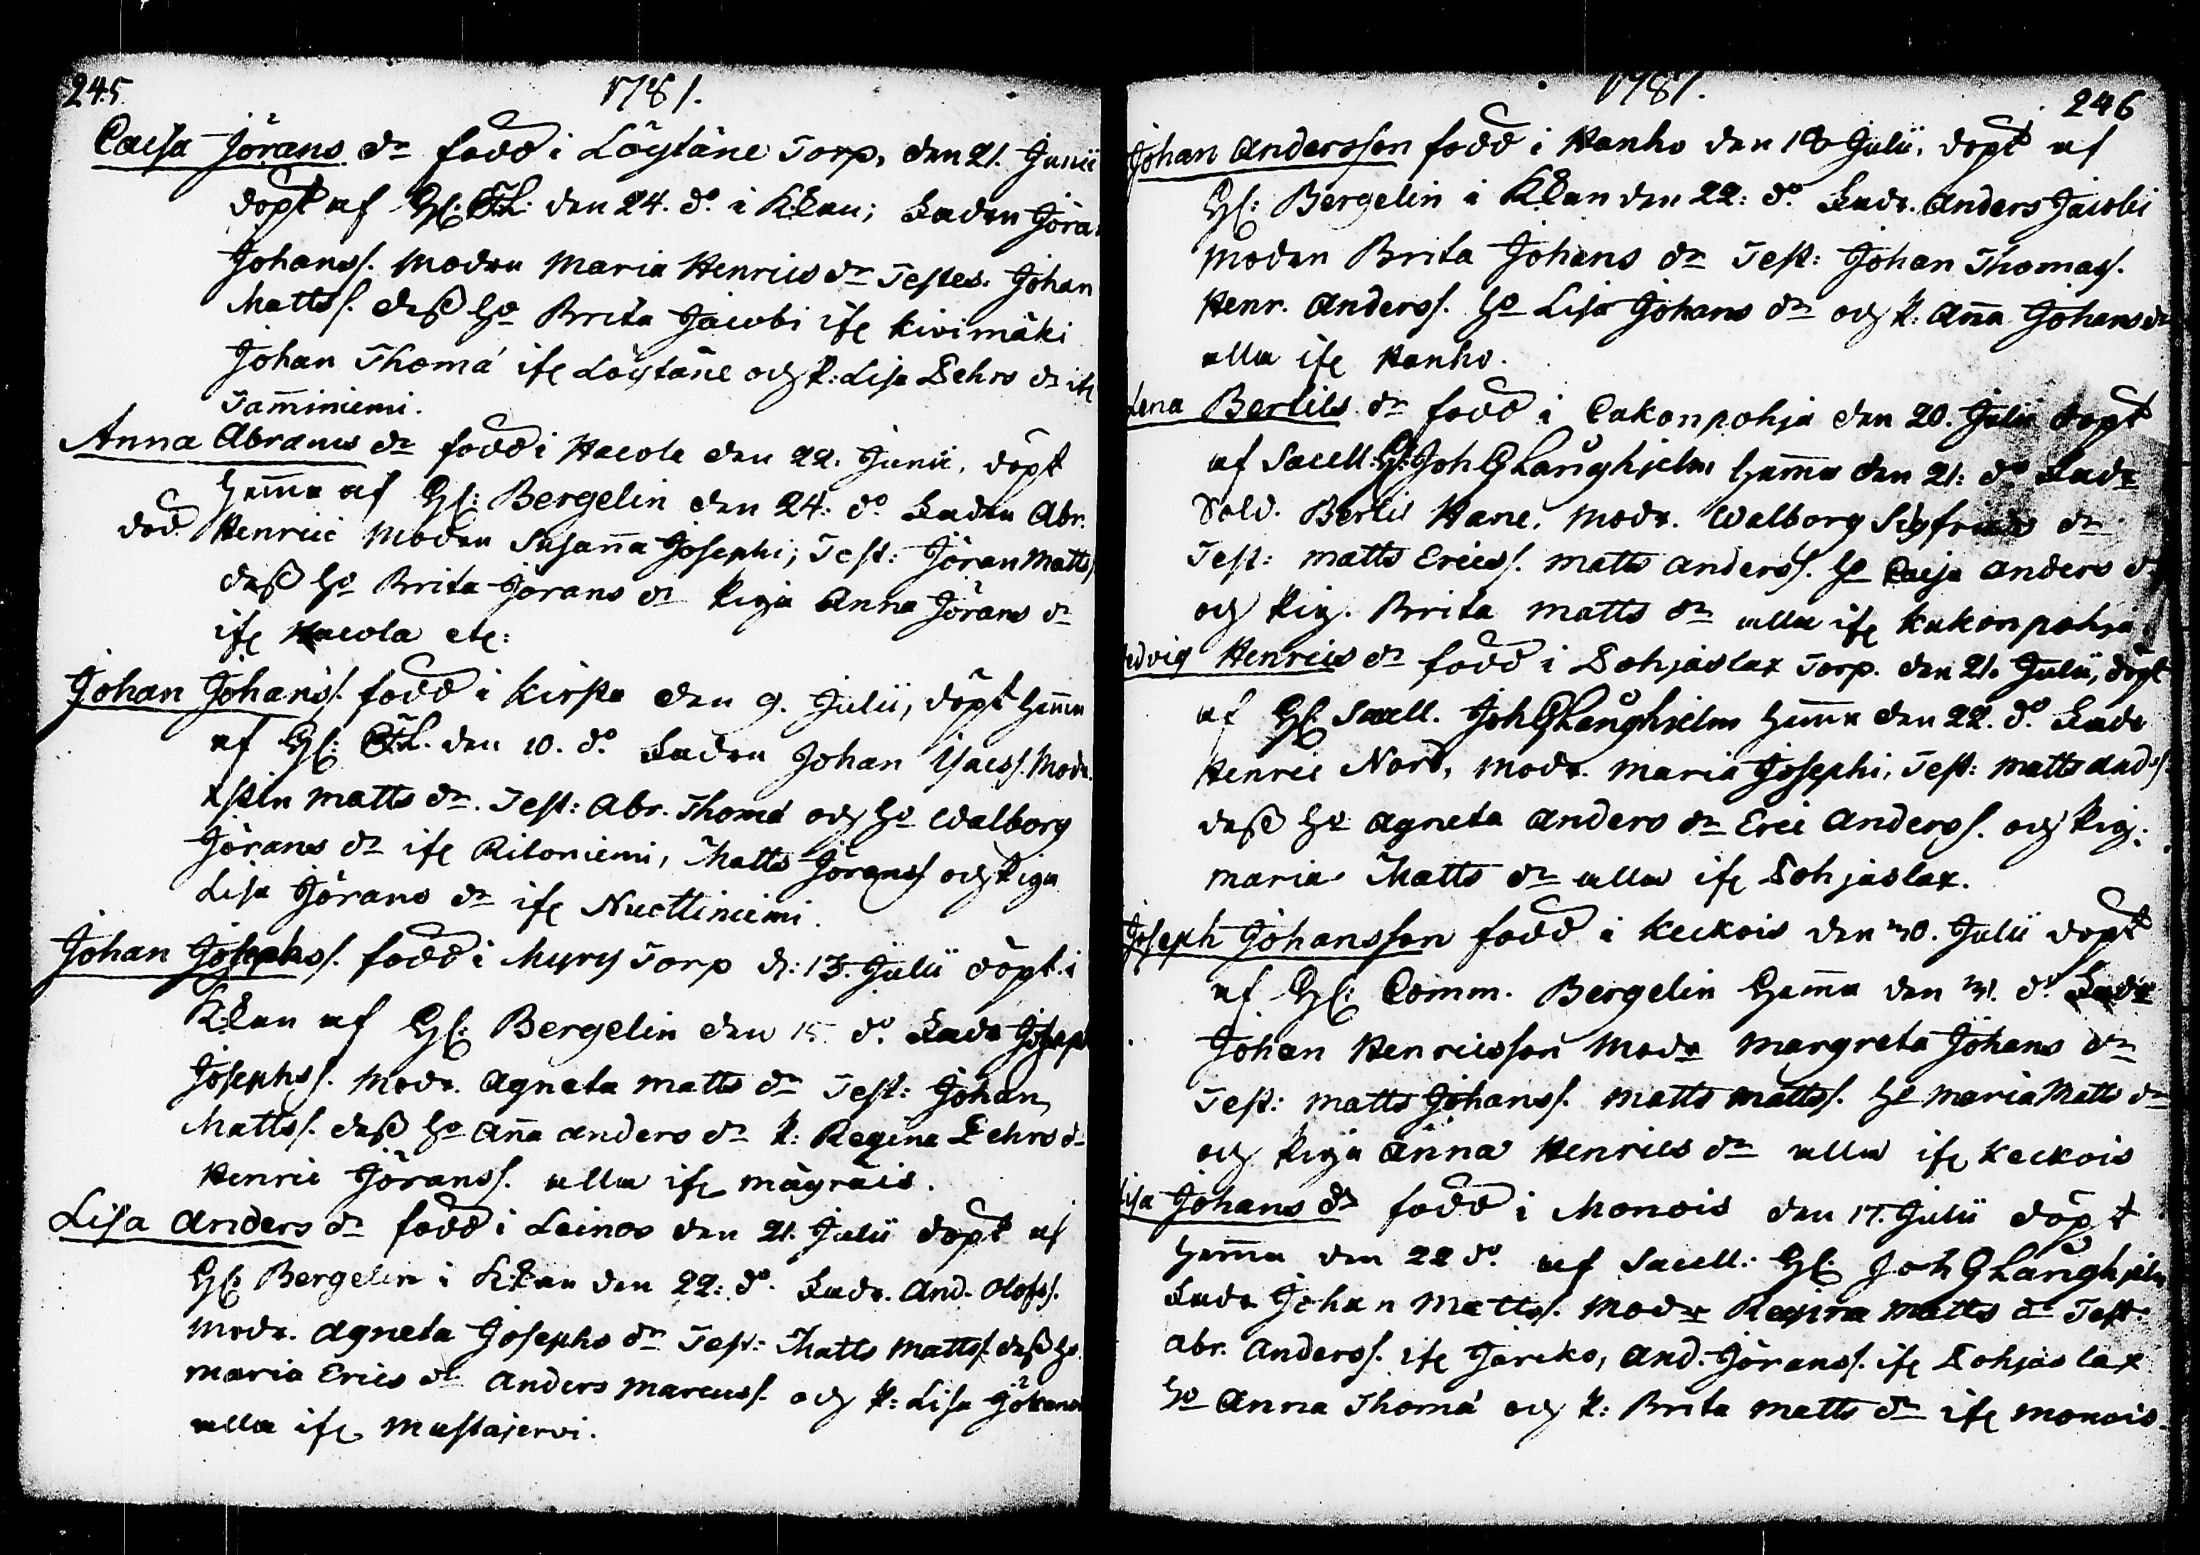 245 1781.
Caisa Jörans dr född i Löytäne Torp, den 21. Junii
döpt af H: den 24. do i K:kan; Fadren Jöran
Johanss. Modren Maria Henrics dr Testes. Johan
Matts s. dess ho Brita Jacobi ifr Kivimäki
Johan Thomæ ifr Löytäne och p: Lisa Pehrs dr ifr
Tam̄iniemi.
Anna Abrams dr född i Hacola den 22. Junii, döpt
hem̄a af H: Bergelin den 24. do Fadren Abr.
död Henrici Modren Susan̄a Josephi; Test: Jöran Matts
dess ho Brita Jörans dr Piga Anna Jörans dr
ifr Hacola etc:
Johan Johans s. född i Kirsta den 9. Julii, döpt hem̄a
af H: den 10. do Fadren Johan Isacs s. Modr.
Xstin Matts dr. Test: Abr. Thomæ och ho Walborg
Jörans dr ifr Ritoniemi, Matts Jörans s och Piga
Lisa Jörans dr ifr Nuottiniemi.
Johan Josephs s. född i Myry Torp d: 13. Julii döpt i
K:kan af H: Bergelin den 15. do Fadr Joseph
Josephs s. Modr. Agneta Matts dr Test: Johan
Matts s. dess ho An̄a Anders dr p: Regina Pehrs dr
Henric Jörans s. alla ifr Mägräis.
Lisa Anders dr född i Leinos den 21. Julii döpt af
H: Bergelin i K:kan den 22: do. Fadr. And. Olofs s.
Modr. Agneta Josephs dr Test: Matts Matts s. dess ho
Maria Erics dr Anders Marcus s. och p: Lisa Johans
alla ifr Mustajervi.
1781. 246
Johan Andersson född i Hanho den 18 Julii. döpt af
H: Bergelin i K:kan den 22: do Fadr. Anders Jacobi
Modren Brita Johans dr Test: Johan Thomas s.
Henr. Anders s. ho Lisa Johans dr och p: An̄a Johans dr
alla ifr Hanho.
Lena Bertils dr född i Cakonpohja den 20. Julii döpt
af Sacell: H: Joh G Långhjelm hem̄a den 21: do Fadr
Sold. Bertil Hane. Modr. Walborg Sigfrids dr
Test: Matts Erics s. Matts Anders s. ho Caisa Anders dr
och Pig. Brita Matts dr alla ifr Kakonpohja
Hedvig Henrics dr född i Pohjaslax Torp. den 21. Julii, döpt
af H: Sacell. Joh G Långhjelm hem̄a den 22. do Fadr
Henric Nord, Modr. Maria Josephi, Test: Matts And. s
dess ho Agneta Anders dr Eric Anders s. och Pig.
Maria Matts dr alla ifr Pohjaslax.
Joseph Johansson född i Keckois den 30. Julii döpt
af H: Comm. Bergelin hem̄a den 31. do Fadr
Johan Henricsson Modr Margreta Johans dr
Test: Matts Johans s. Matts Matts s. ho Maria Matts dr
och Piga Anna Henrics dr alla ifr Keckois
Lisa Johans dr född i Monois den 17. Julii döpt
hem̄a den 22 do. af Sacell: H: Joh G Långhjelm
Fadr Johan Matts s. Modr Regina Matts dr Test:
Abr. Anders s. ifr Järicko, And. Jörans s. ifr Pohjaslax
ho Anna Thomæ och p: Brita Matts dr ifr Monois.